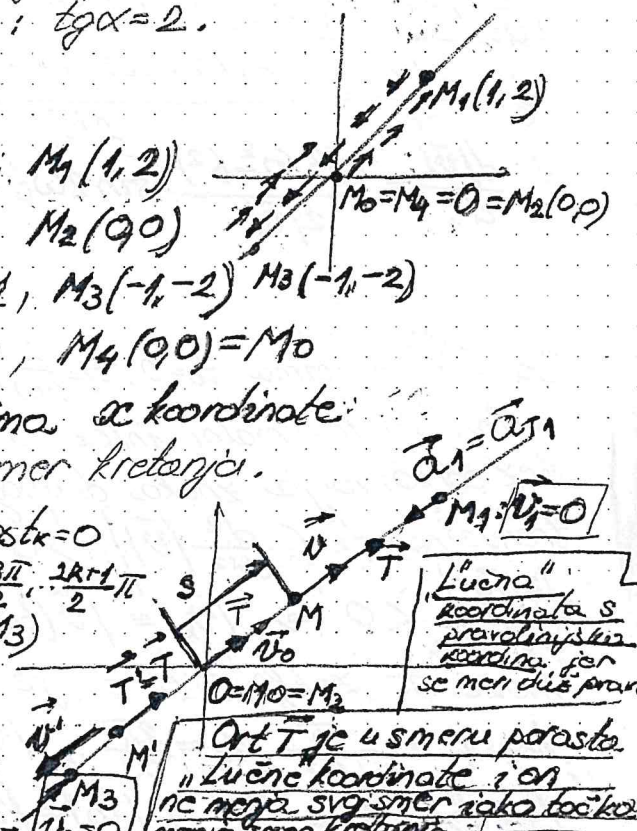 ; tgα=2.
M₁(1,2)
M₁(1,2)
M₀=M₄=O=M₂(0,0)
M₂(0,0)
, M₃(-1,-2)
M₃(-1,-2)
, M₄(0,0)=M₀
x koordinate
mer kretanja.
a⃗₁=a⃗T₁
M₁: v⃗₁=0
=0
2k+1/2 π
M₃)
s
v⃗
T⃗
M
T⃗
v⃗₀
T⃗'=T⃗
O=M₀=M₂
"Lučna"
koordinata s
pravolinijska
koordina. jer
se meri duž prav
v⃗'
M'
M₃
=0
Ort T⃗ je u smeru porasta
"Lučne" koordinate i on
ne menja svoj smer iako točka